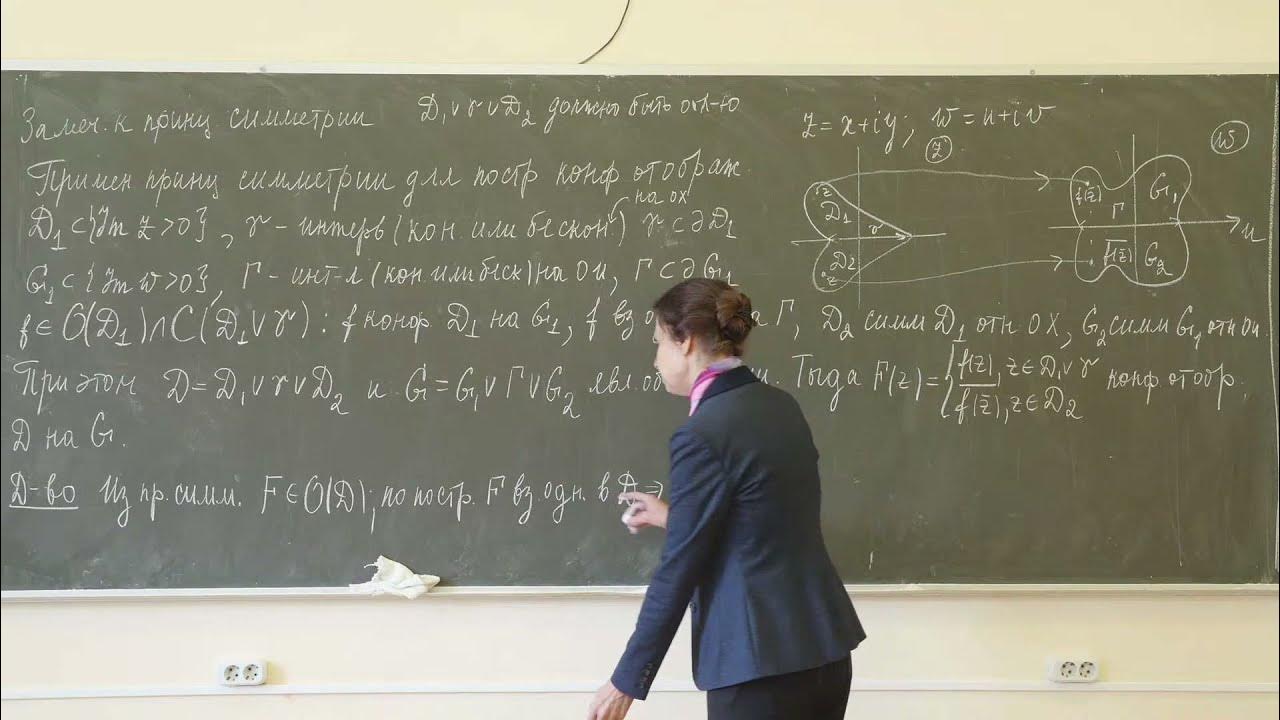 Замеч. к принц. симметрии D₁∪γ∪D₂ должно быть обл-ю
z = x+iy; w = u+iv
Примен принц симметрии для постр конф отображ.
D₁⊂{Im z>0}, γ – интерв (кон. или бескон) на ox γ⊂∂D₁
G₁⊂{Im w>0}, Γ – инт-л (кон. или беск) на 0u, Γ⊂∂G₁
f∈O(D₁)∩C(D₁∪γ): f конф. D₁ на G₁, f вз о а Γ, D₂ симм D₁ отн OX, G₂ симм G₁ отн Ou
При этом D=D₁∪γ∪D₂ и G=G₁∪Γ∪G₂ явл. об и. Тогда F(z)={f(z), z∈D₁∪γ конф. отобр.
f(z̄)̅, z∈D₂
D на G.
Д-во Из пр. симм. F∈O(D); по постр. F вз. одн. в D ⇒
z
w
z
D₁
γ
D₂
z̄
f(z)
Γ
G₁
f(z̄)̅
G₂
u